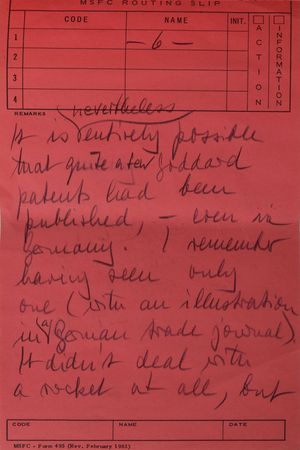 MSFC ROUTING SLIP
CODE NAME INIT. ACTION INFORMATION
1 -6-
2
3
4
REMARKS
nevertheless
It is entirely possible
that quite a few Goddard
patents had been
published, – even in
Germany. I remember
having seen only
one (with an illustration
in (a) German trade journal).
It didn't deal with
a rocket at all, but
CODE NAME DATE
MSFC - Form 495 (Rev. February 1961)